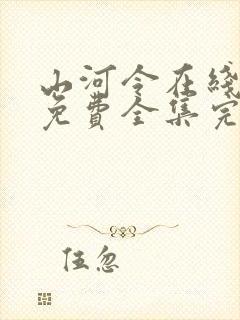 山河令在线
免費全集完
任忽